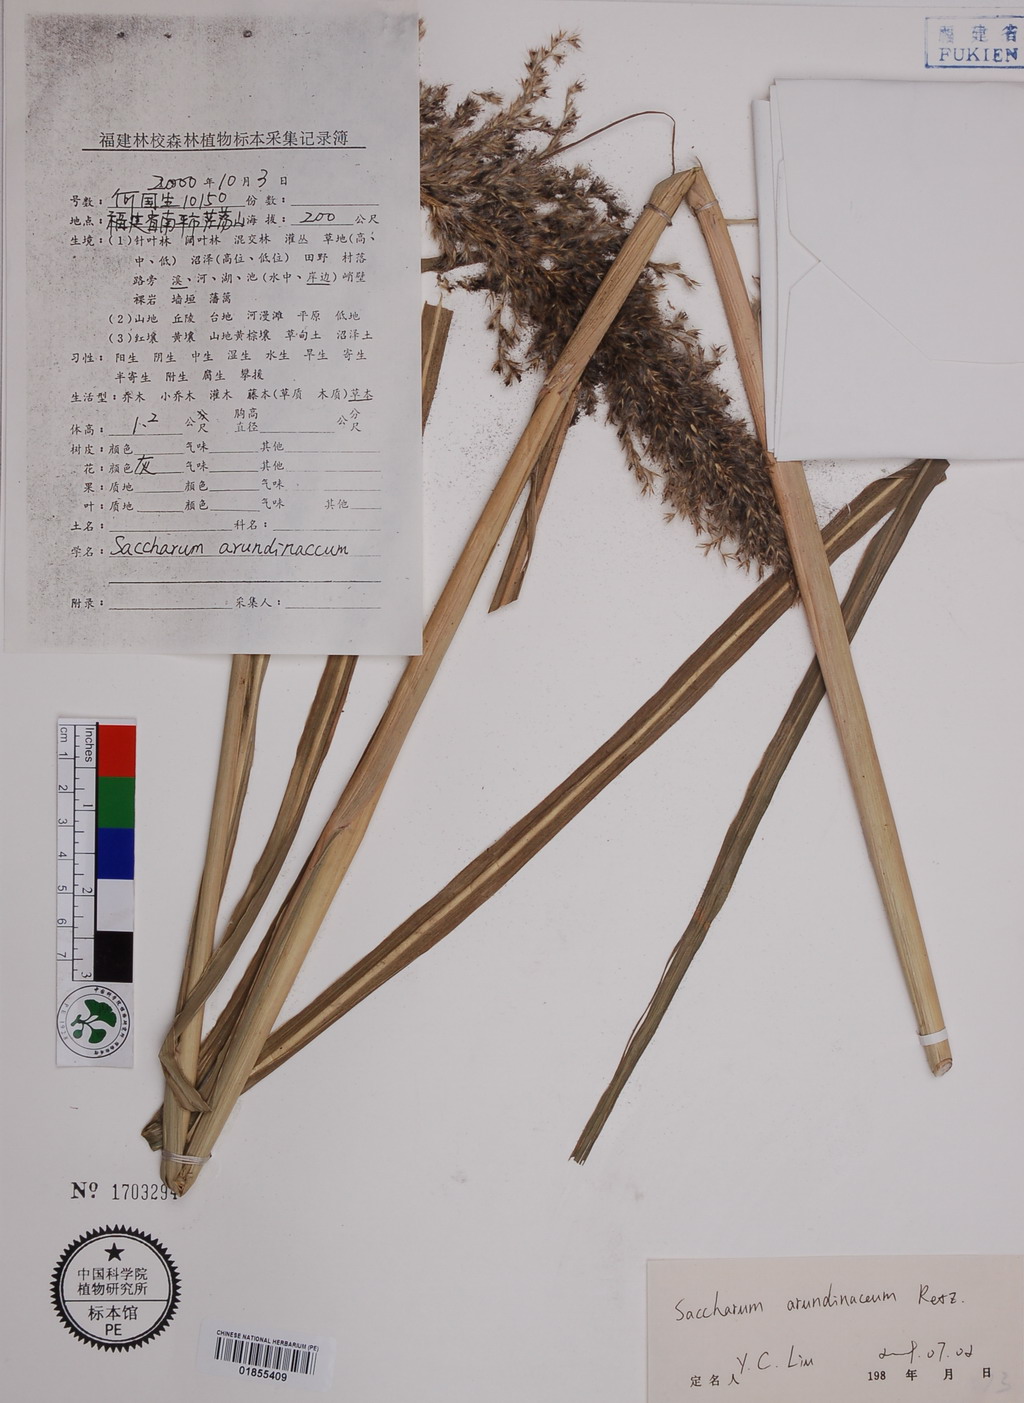 福建省
FUKIEN
福建林校森林植物标本采集记录簿
2000年10月3日
号数：何国生10150 份数：
地点：福建省南平市茫荡山 海拔：200 公尺
生境：(1)针叶林 阔叶林 混交林 灌丛 草地(高、
中、低) 沼泽(高位、低位) 田野 村落
路旁 溪、河、湖、池(水中、岸边)峭壁
裸岩 墙垣 藩篱
(2)山地 丘陵 台地 河漫滩 平原 低地
(3)红壤 黄壤 山地黄棕壤 草甸土 沼泽土
习性：阳生 阴生 中生 湿生 水生 旱生 寄生
半寄生 附生 腐生 攀援
生活型：乔木 小乔木 灌木 藤本(草质 木质)草本
体高：1.2 公分尺 胸高直径 公分尺
树皮：颜色 气味 其他
花：颜色灰 气味 其他
果：质地 颜色 气味
叶：质地 颜色 气味 其他
土名： 科名：
学名：Saccharum arundinaccum
附录： 采集人：
cm 1 2 3 4 5 6 7
Inches 1 2 3
№ 1703294
中国科学院
植物研究所
标本馆
PE
CHINESE NATIONAL HERBARIUM (PE)
01855409
Saccharum arundinaceum Retz.
定名人 Y. C. Liu 198 年 月 日